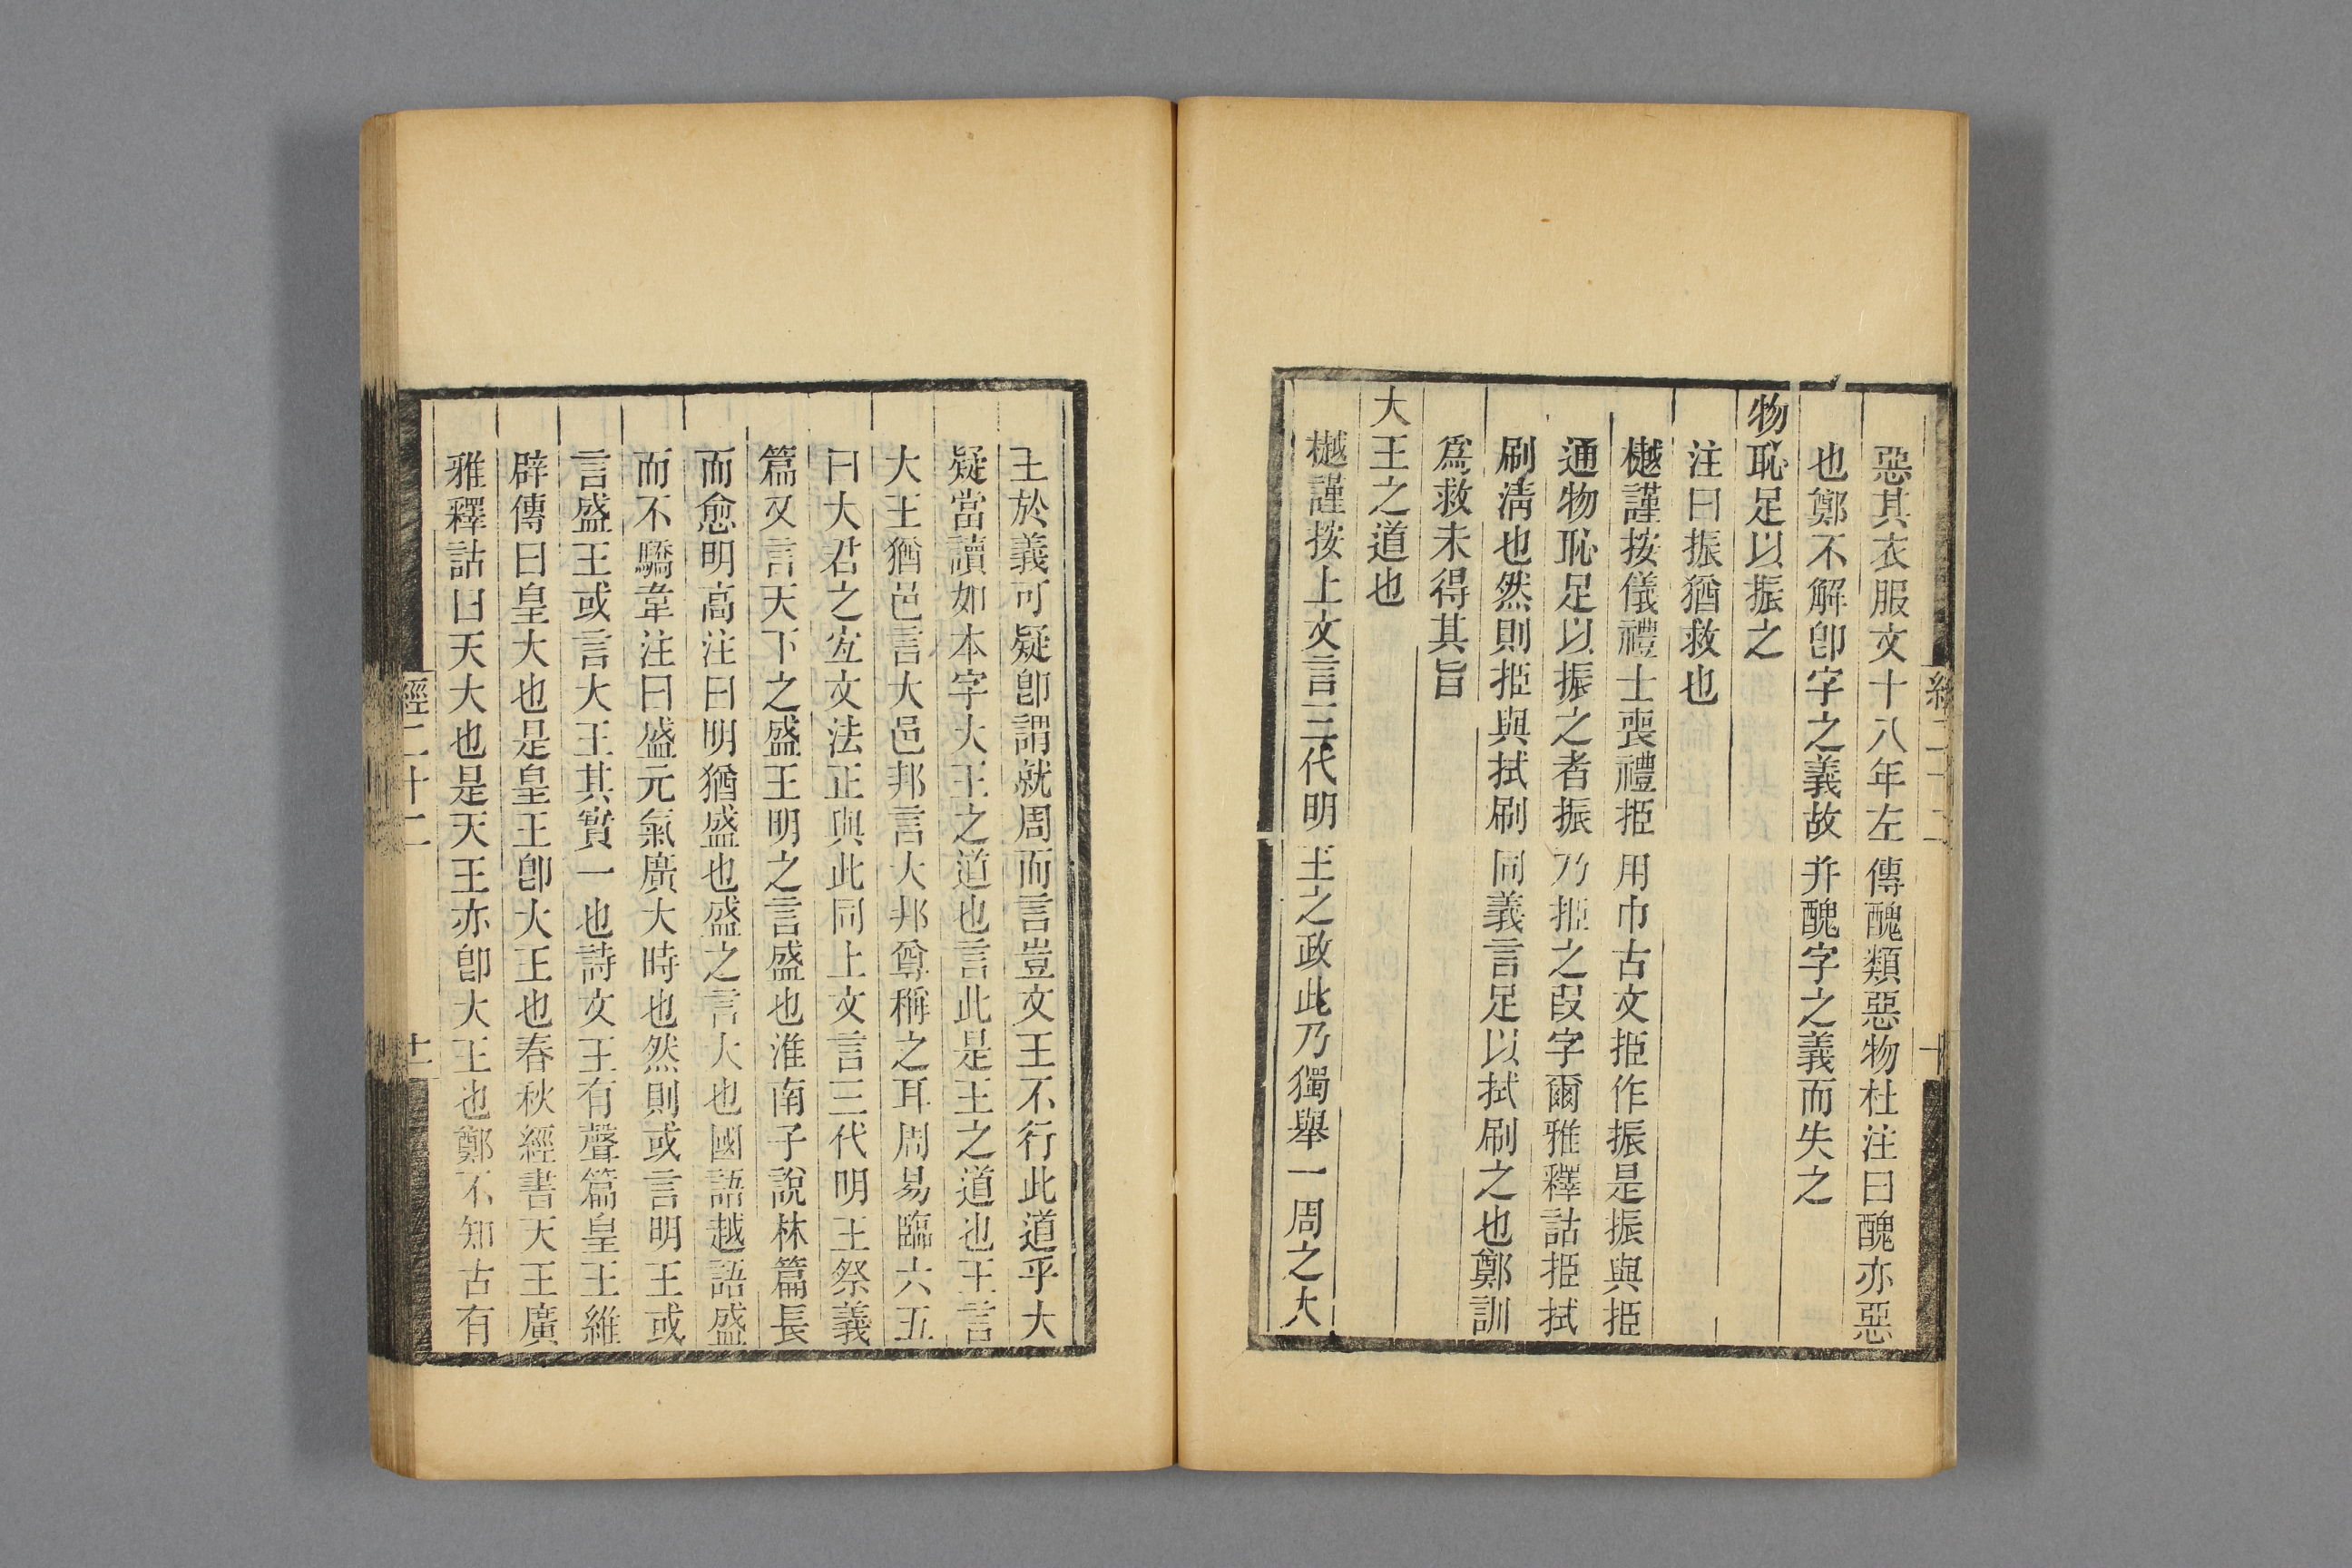 惡其衣服文十八年左傳醜類惡物杜注曰醜亦惡
也鄭不解卽字之義故并醜字之義而失之
物恥足以振之
注曰振猶救也
樾謹按儀禮士喪禮挋用巾古文挋作振是振與挋
通物恥足以振之者振乃挋之叚字爾雅釋詁挋拭
刷淸也然則挋與拭刷同義言足以拭刷之也鄭訓
爲救未得其旨
大王之道也
樾謹按上文言三代明王之政此乃獨舉一周之大
王於義可疑卽謂就周而言豈文王不行此道乎大
疑當讀如本字大王之道也言此是王之道也王言
大王猶邑言大邑邦言大邦尊稱之耳周易臨六五
曰大君之宐文法正與此同上文言三代明王祭義
篇又言天下之盛王明之言盛也淮南子說林篇長
而愈明高注曰明猶盛也盛之言大也國語越語盛
而不驕韋注曰盛元氣廣大時也然則或言明王或
言盛王或言大王其實一也詩文王有聲篇皇王維
辟傳曰皇大也是皇王卽大王也春秋經書天王廣
雅釋詁曰天大也是天王亦卽大王也鄭不知古有
經二十二
十一